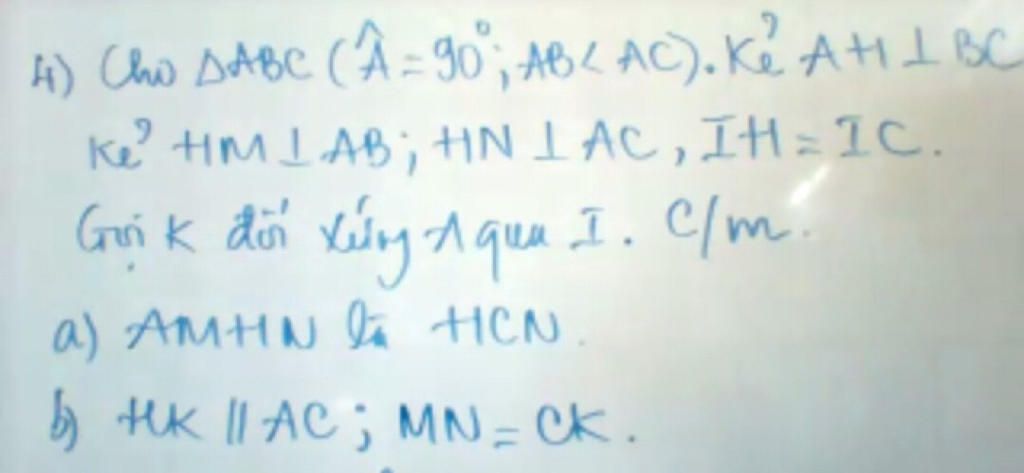 4) Cho ΔABC (Â = 90°; AB < AC). Kẻ AH ⊥ BC
Kẻ HM ⊥ AB; HN ⊥ AC, IH = IC.
Gọi K đối xứng A qua I. C/m.
a) AMHN là HCN.
b) HK // AC; MN = CK.